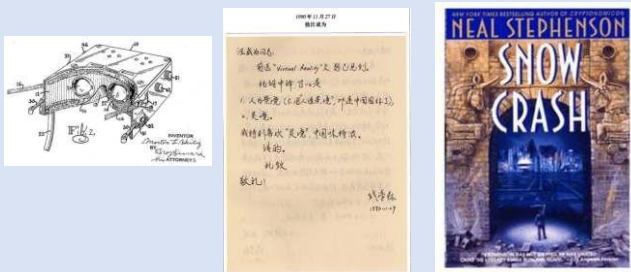 Fig. 2.
INVENTOR
Morton L. Heilig
BY
ATTORNEYS
1990年11月27日
致汪成为
汪成为同志:
前送“Virtual Reality”文想已见到。
此词中译可以是:
1.人为景境(不用人造景境,那是中国园林了),
2.灵境。
我特别喜欢“灵境”,中国味特浓。
请酌。
此致
敬礼!
钱学森
1990.11.27
NEW YORK TIMES BESTSELLING AUTHOR OF CRYPTONOMICON
NEAL STEPHENSON
SNOW
CRASH